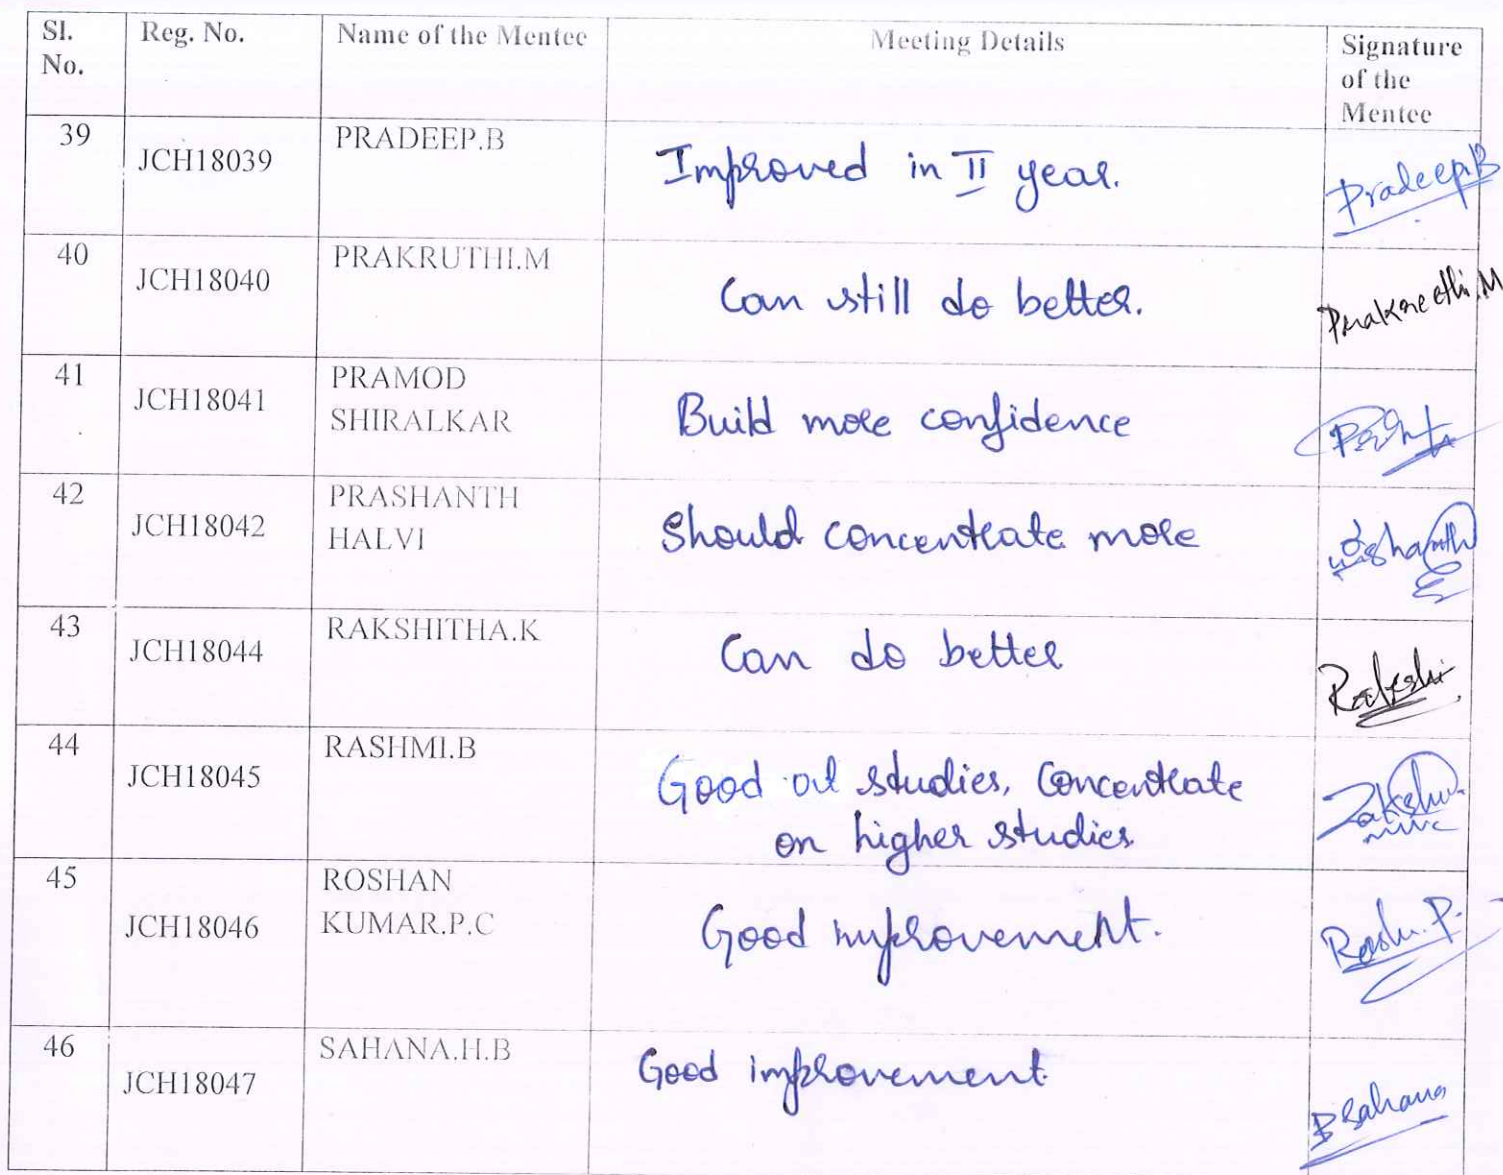 Sl. No. Reg. No. Name of the Mentee Meeting Details Signature of the Mentee
39 JCH18039 PRADEEP.B Improved in II year. Pradeep.B
40 JCH18040 PRAKRUTHI.M Can still do better. Prakruthi.M
41 JCH18041 PRAMOD SHIRALKAR Build more confidence
42 JCH18042 PRASHANTH HALVI Should concentrate more
43 JCH18044 RAKSHITHA.K Can do better
44 JCH18045 RASHMI.B Good studies, Concentrate
on higher studies
45 JCH18046 ROSHAN KUMAR.P.C Good improvement.
46 JCH18047 SAHANA.H.B Good improvement B Sahana